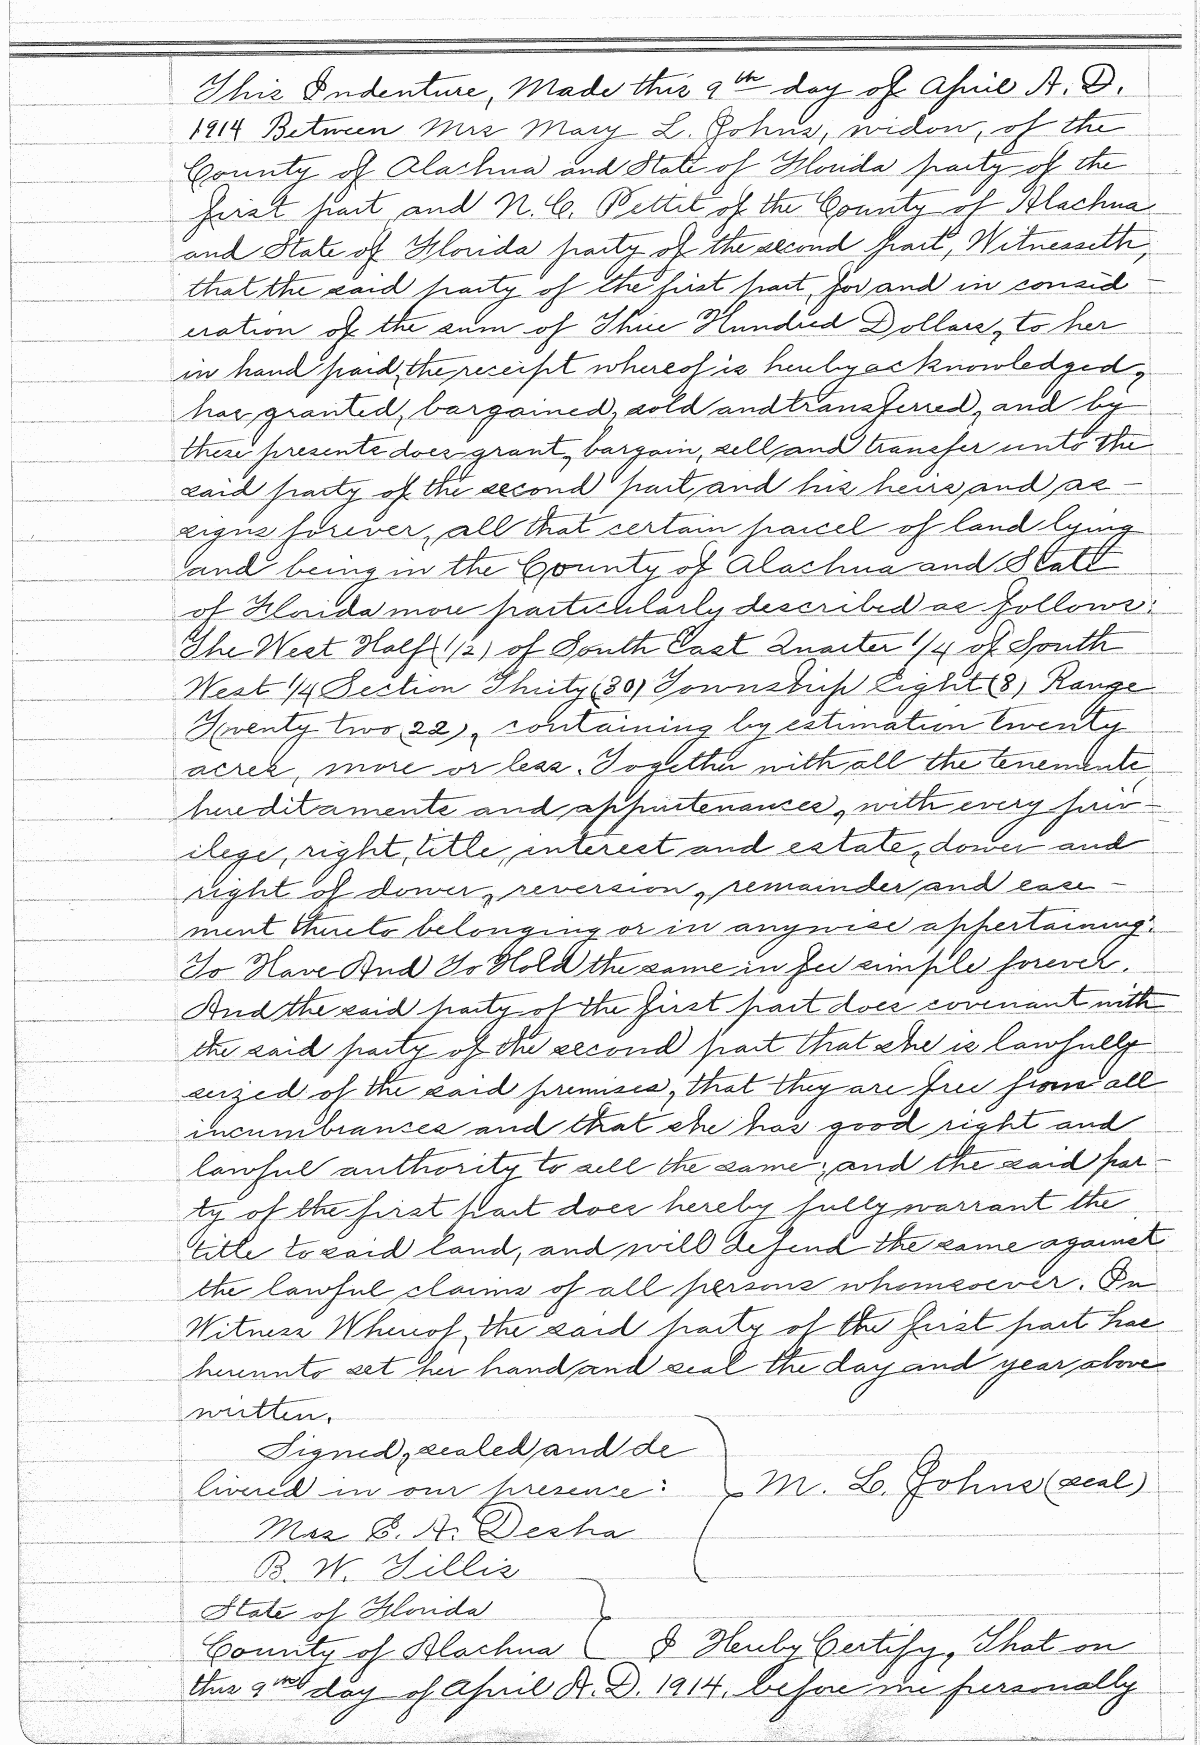 This Indenture, Made this 9th day of April A. D.
1914 Between Mrs Mary L. Johns, widow, of the
County of Alachua and State of Florida party of the
first part and N. C. Pettit of the County of Alachua
and State of Florida party of the second part, Witnesseth,
that the said party of the first part, for and in consid-
eration of the sum of Three Hundred Dollars, to her
in hand paid, the receipt whereof is hereby acknowledged,
has granted, bargained, sold and transferred, and by
these presents does grant, bargain, sell and transfer unto the
said party of the second part and his heirs and as-
signs forever, all that certain parcel of land lying
and being in the County of Alachua and State
of Florida more particularly described as follows:
The West Half (1/2) of South East Quarter 1/4 of South
West 1/4 Section Thirty (30) Township Eight (8) Range
Twenty two 22), containing by estimation twenty
acres, more or less. Together with all the tenements,
hereditaments and appurtenances, with every priv-
ilege, right, title, interest and estate, dower and
right of dower, reversion, remainder and ease-
ment thereto belonging or in anywise appertaining:
To Have And To Hold the same in fee simple forever.
And the said party of the first part does covenant with
the said party of the second part that she is lawfully
seized of the said premises, that they are free from all
incumbrances and that she has good right and
lawful authority to sell the same; and the said par-
ty of the first part does hereby fully warrant the
title to said land, and will defend the same against
the lawful claims of all persons whomsoever. In
Witness Whereof, the said party of the first part has
hereunto set her hand and seal the day and year above
written.
Signed, sealed and de
livered in our presence:
M. L. Johns (seal)
Mrs E. A. Desha
B. W. Tillis
State of Florida
County of Alachua
I Hereby Certify, That on
this 9th day of April A. D. 1914, before me personally